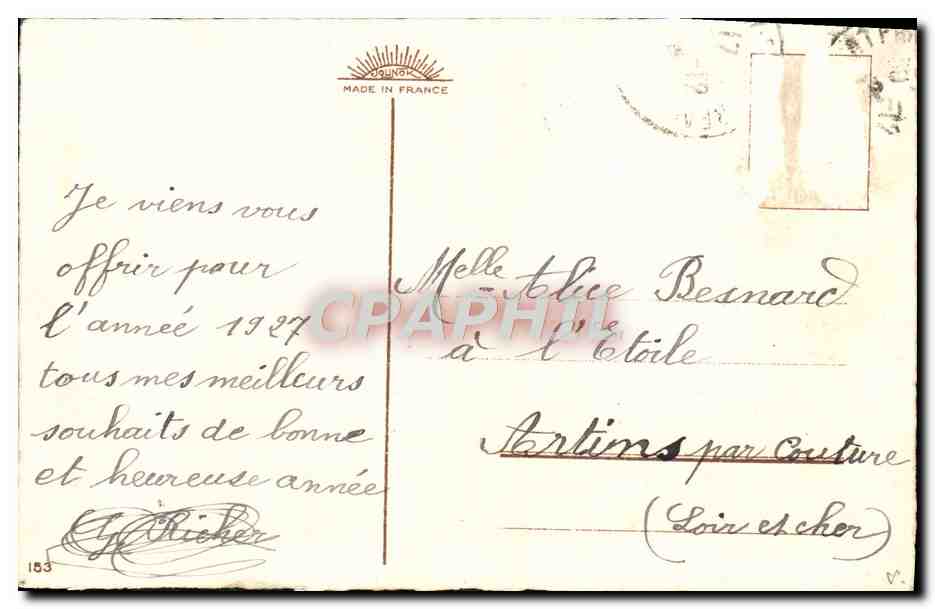 JOUNOK
MADE IN FRANCE
Je viens vous
offrir pour
l'année 1927
tous mes meilleurs
souhaits de bonne
et heureuse année
G Richer
153
Melle Alice Besnard
à l'Etoile
Artins par Couture
(Loir et cher)
CPAPHIL